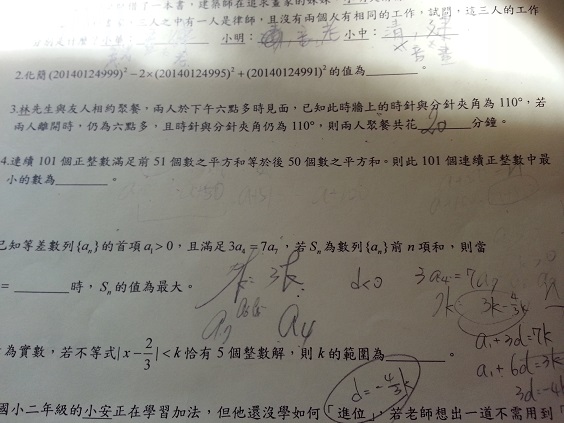 買了一本書，建築師在追求畫家的妹妹，
三人之中有一人是律師，且沒有兩個人有相同的工作，試問，這三人的工作
小明： 小中：
2.化簡(20140124999)²－2×(20140124995)²＋(20140124991)²的值為 。
3.林先生與友人相約聚餐，兩人於下午六點多時見面，已知此時牆上的時針與分針夾角為110°，若
兩人離開時，仍為六點多，且時針與分針夾角仍為110°，則兩人聚餐共花 20 分鐘。
4.連續101個正整數滿足前51個數之平方和等於後50個數之平方和。則此101個連續正整數中最
小的數為 。
已知等差數列{aₙ}的首項a₁>0，且滿足3a₄=7a₇，若Sₙ為數列{aₙ}前n項和，則當
= 時，Sₙ的值為最大。
3k d<0 3a₄=7a₇
a₇ a₄ 3k-4/3k
a₁+3d=7k
為實數，若不等式|x-2/3|<k恰有5個整數解，則k的範圍為 。
a₁+6d=3k
d=-4/3k 3d=-4k
國小二年級的小安正在學習加法，但他還沒學如何「進位」，若老師想出一道不需用到「